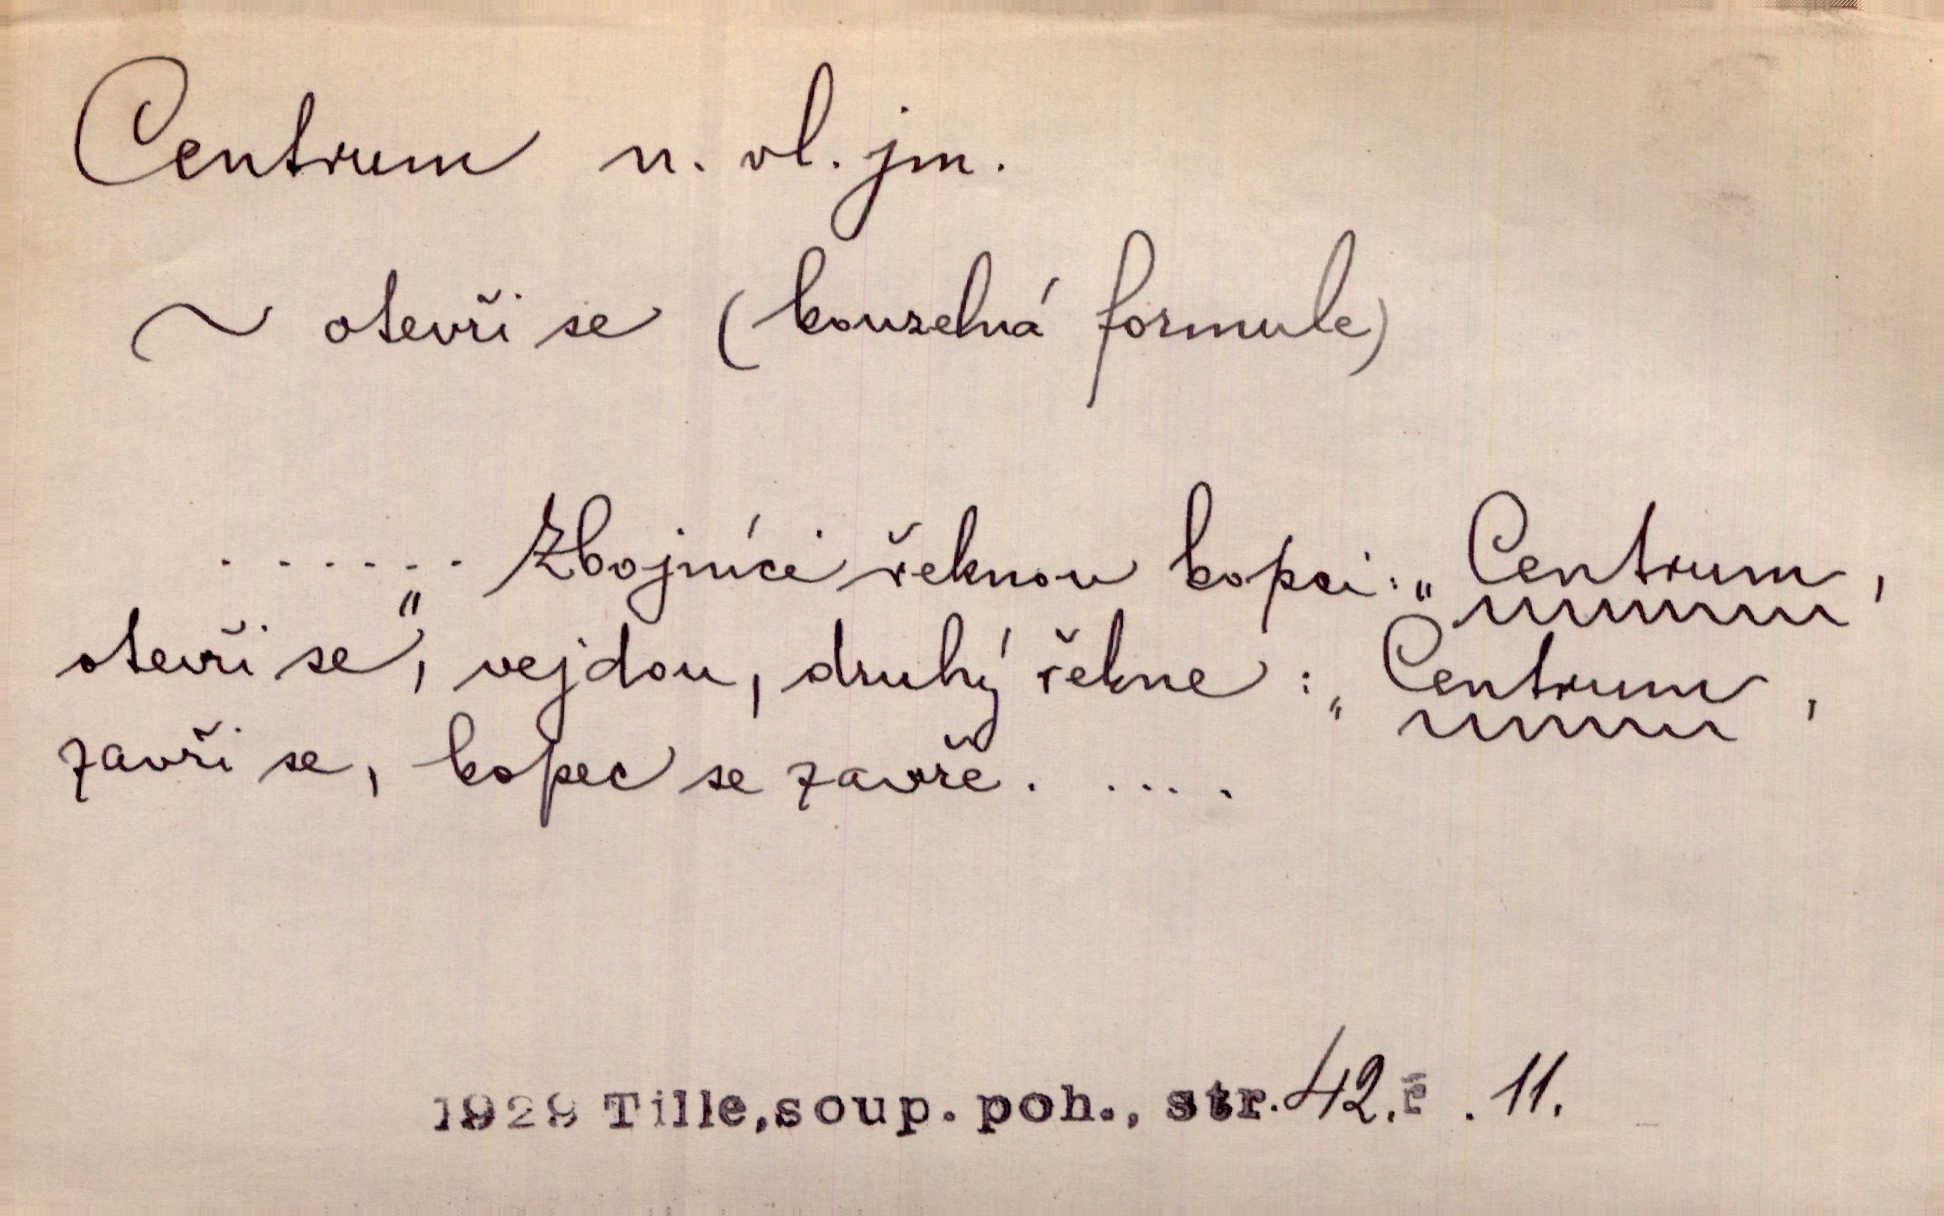 Centrum n. vl. jm.
~ otevři se (kouzelná formule)
. . . . . . Zbojníci řeknou kopci: „Centrum,
otevři se", vejdou, druhý řekne: „Centrum,
zavři se, kopec se zavře. . . . .
1929 Tille,soup.poh., str.42.ř .11.